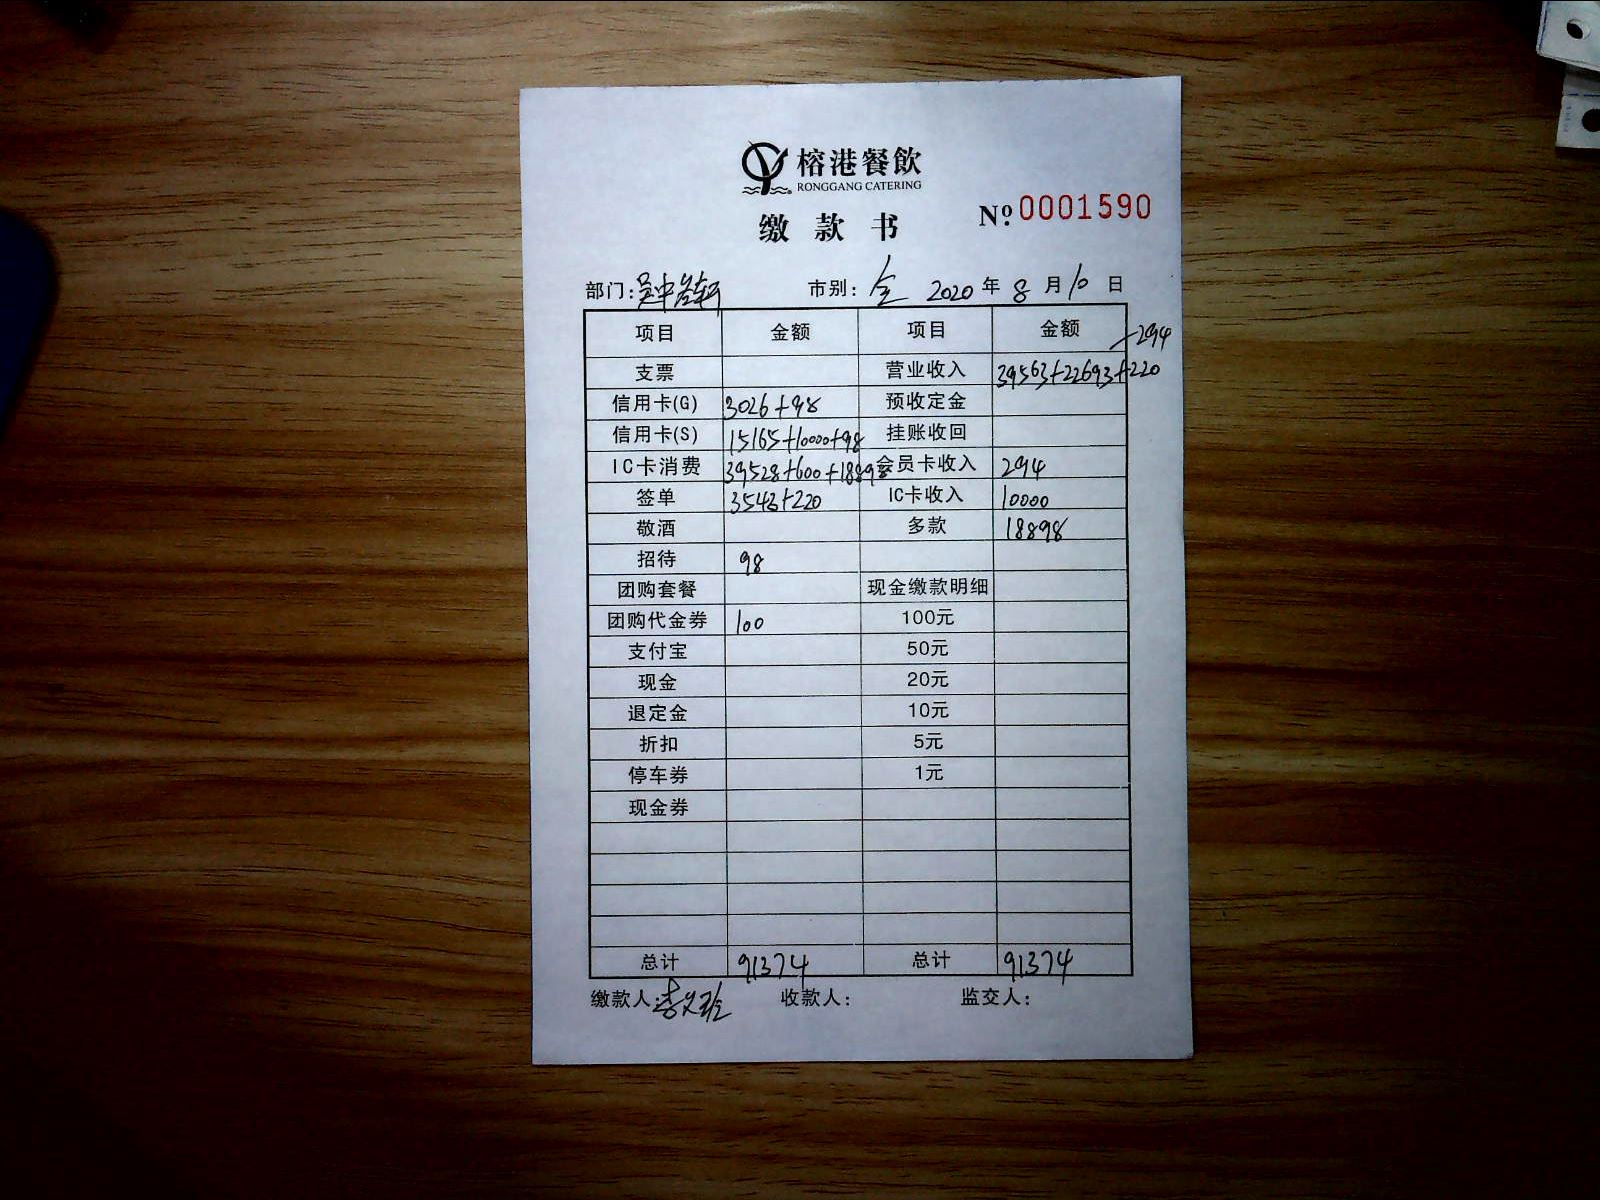 榕港餐飲
RONGGANG CATERING
缴款书
№ 0001590
部门: 市别: 全 2020 年 8 月 10 日
项目 金额 项目 金额 -294
支票 营业收入 39563+22693+220
信用卡(G) 3026+98 预收定金
信用卡(S) 15165+10000+98 挂账收回
IC卡消费 39528+600+18898 会员卡收入 294
签单 3543+220 IC卡收入 10000
敬酒 多款 18898
招待 98
团购套餐 现金缴款明细
团购代金券 100 100元
支付宝 50元
现金 20元
退定金 10元
折扣 5元
停车券 1元
现金券
总计 91374 总计 91374
缴款人: 收款人: 监交人: